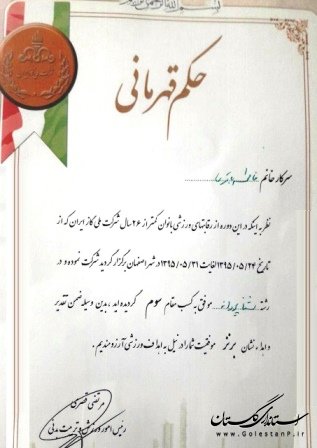 بسم الله الرحمن الرحیم
حکم قهرمانی
سرکار خانم
نظر به اینکه در این دوره از رقابتهای ورزشی بانوان کمتر از ۲۶ سال شرکت ملی گاز ایران که از
تاریخ ۱۳۹۵/۰۵/۲۴ لغایت ۱۳۹۵/۰۵/۳۱ در شهر اصفهان برگزار گردید شرکت نموده و در
رشته موفق به کسب مقام سوم گردیده اید، بدین وسیله ضمن تقدیر
و اهداء نشان برنز موفقیت شما را در نیل به اهداف ورزشی آرزومندیم.
مرتضی
رئیس امور ورزش و تربیت بدنی
استانداری گلستان
www.GolestanP.ir